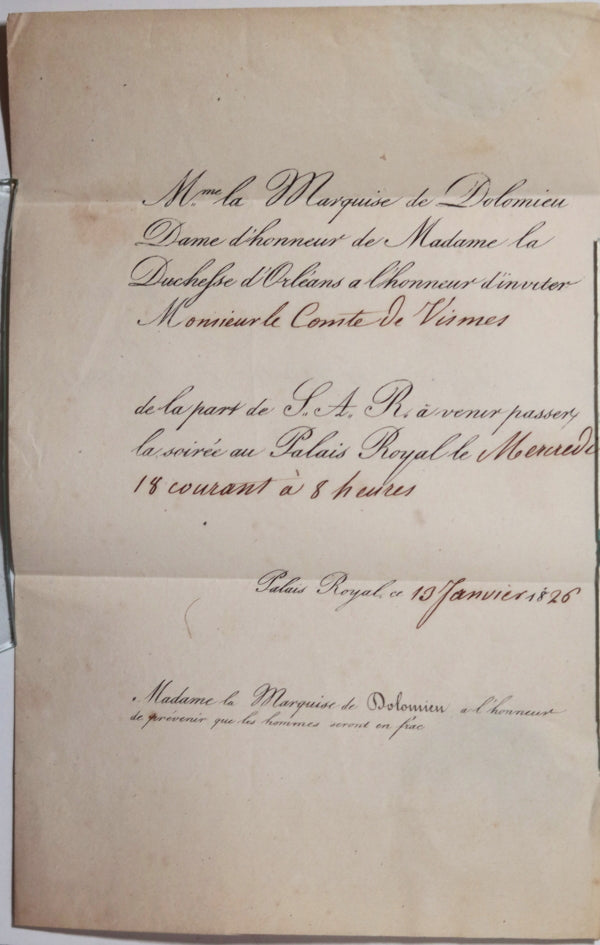 M.me la Marquise de Dolomieu
Dame d'honneur de Madame la
Duchesse d'Orléans a l'honneur d'inviter
Monsieur le Comte de Vismes
de la part de S. A. R. à venir passer
la soirée au Palais Royal le Mercredi
18 courant à 8 heures
Palais Royal, ce 13 Janvier 1826
Madame la Marquise de Dolomieu a l'honneur
de prévenir que les hommes seront en frac